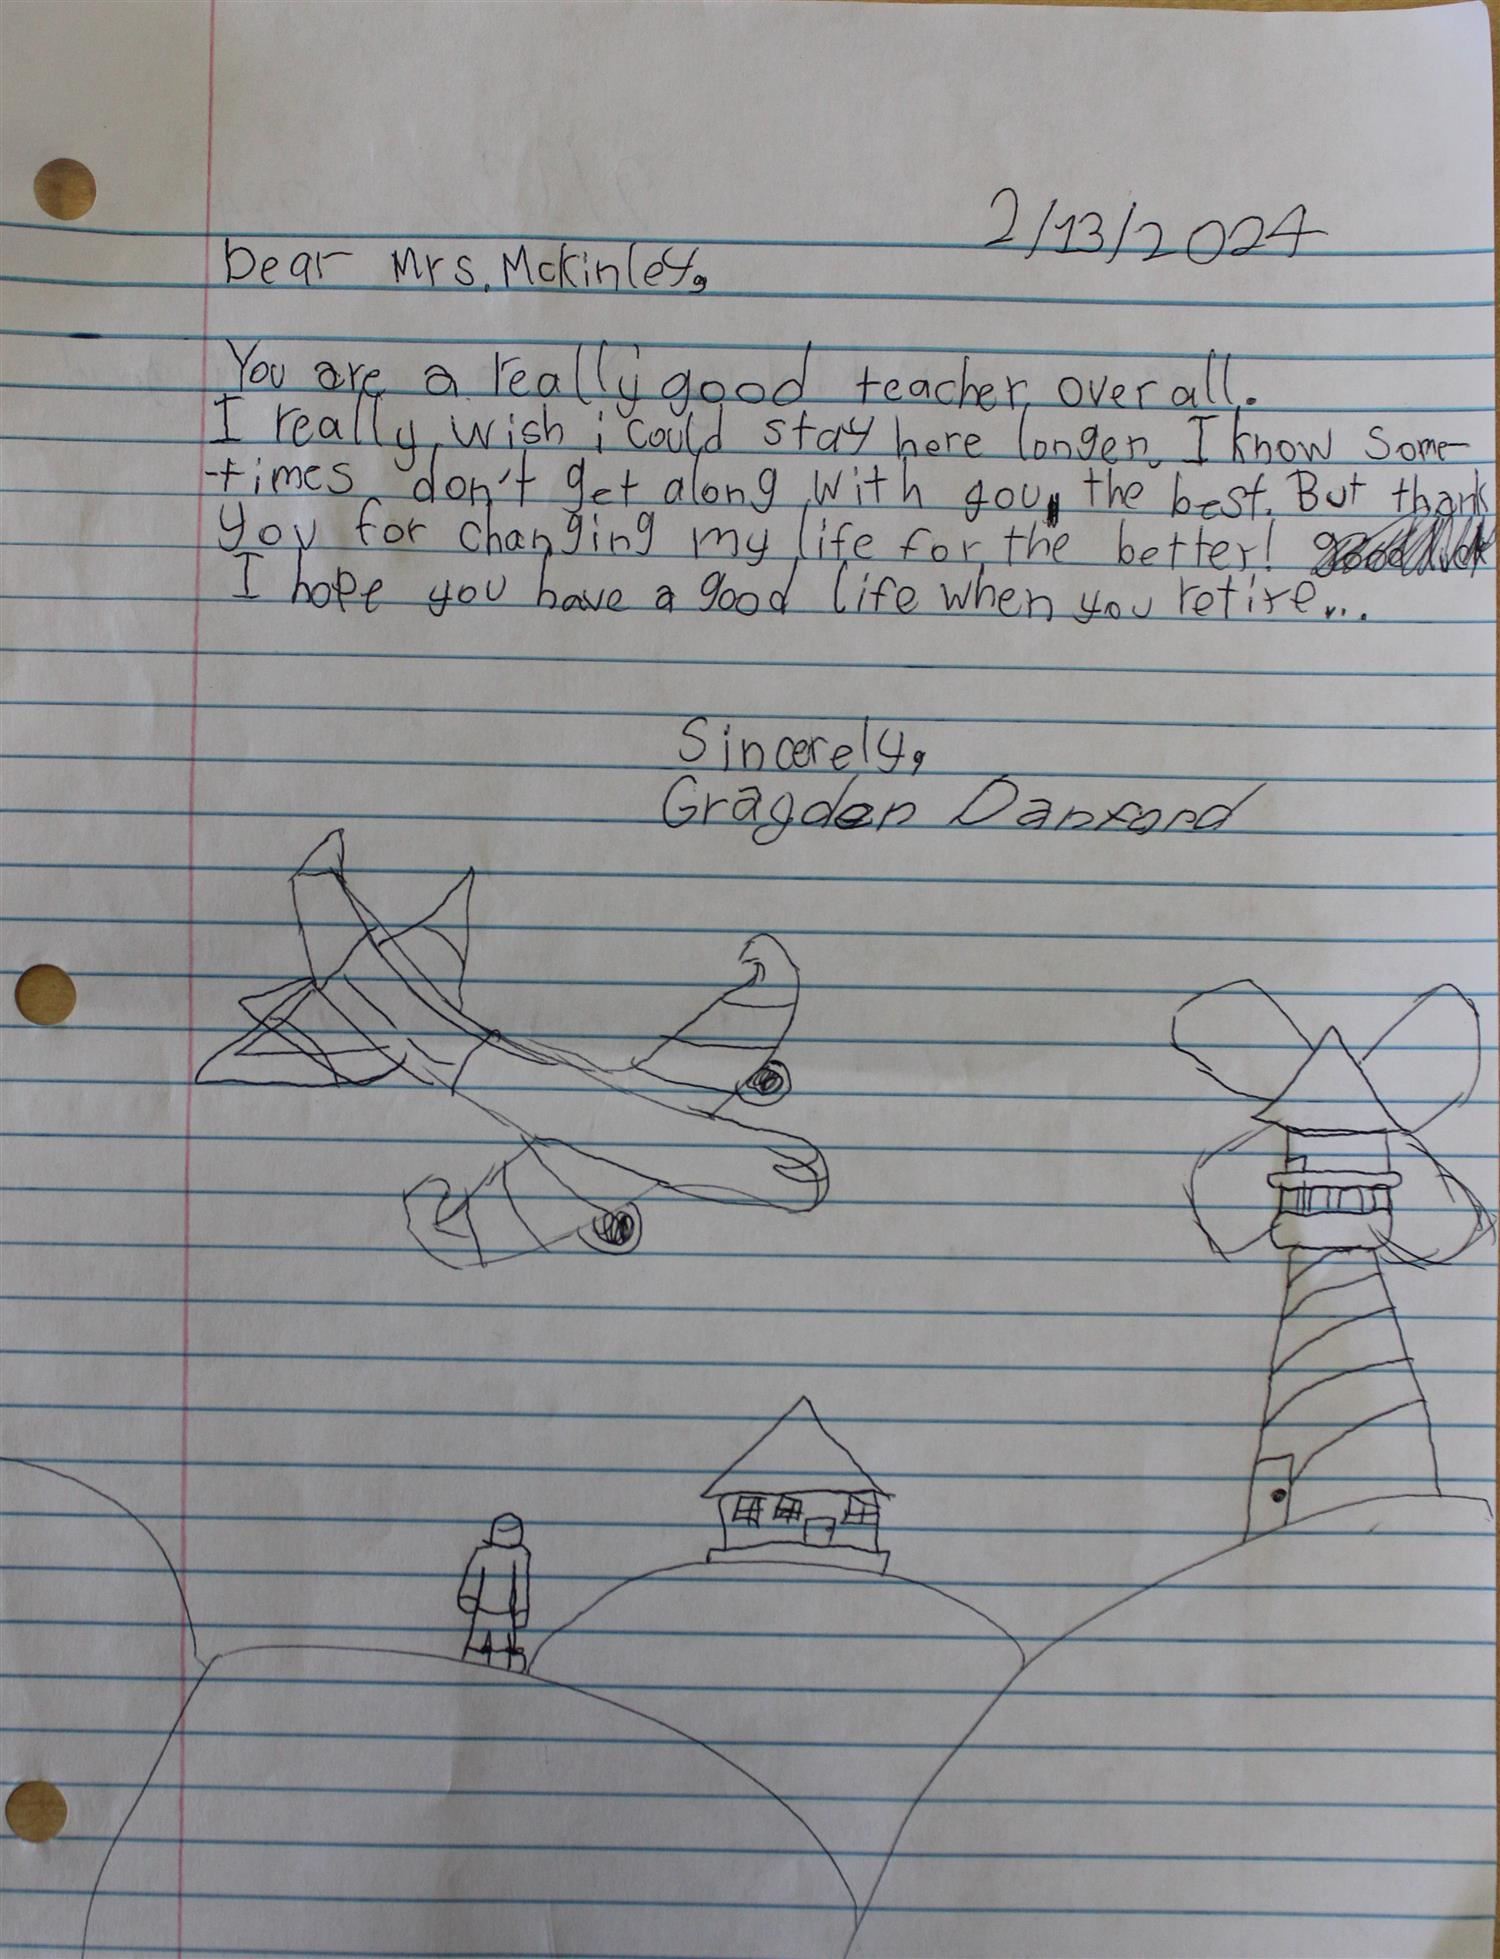 2/13/2024
Dear Mrs. Mckinley,
You are a really good teacher over all.
I really wish i could stay here longer. I know Some-
-times don't get along with you, the best. But thank
you for changing my life for the better! good luck
I hope you have a good life when you retire...
Sincerely,
Gragden Danford